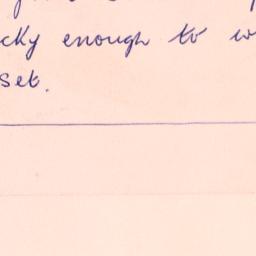 cky enough to w
set.